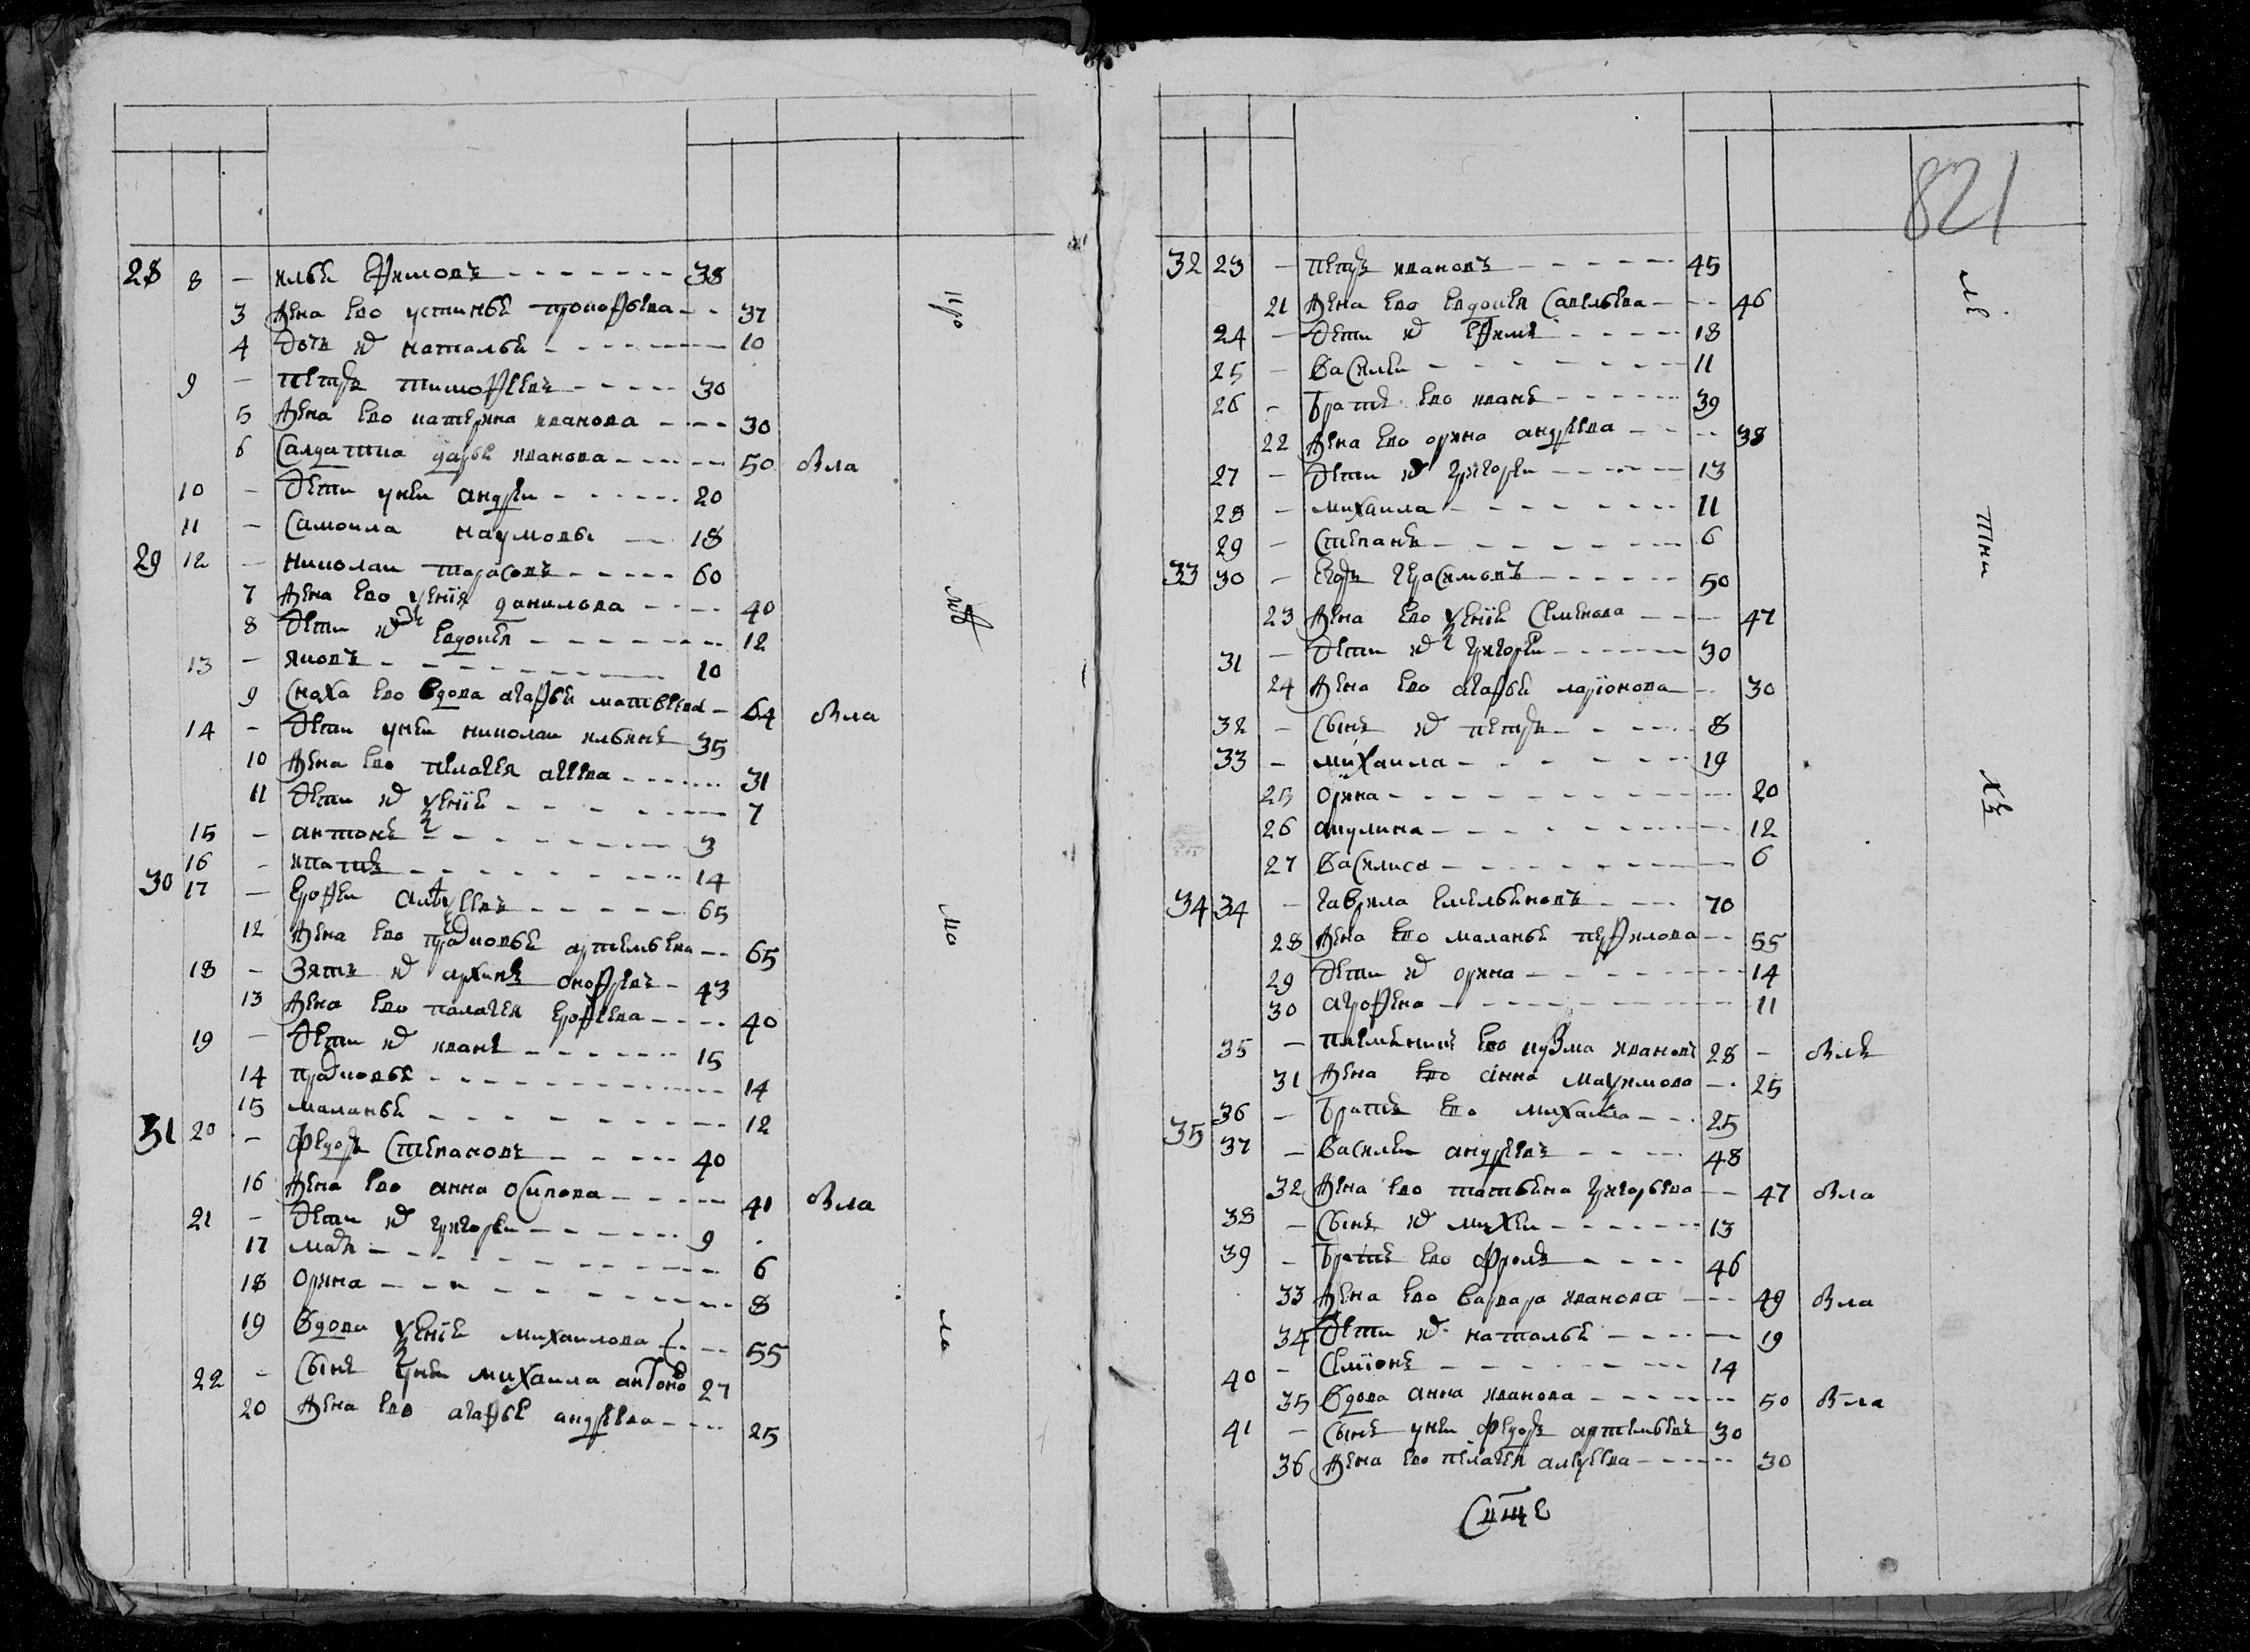 28 8 - илья ефимовъ - - - 38
3 жена ево устинья прокофьева - - 37
4 дочь их наталья - - - 10
9 - петръ тимофеевъ - - - 30
5 жена ево катерина иванова - - - 30
6 салдатка дарья иванова - - - 50 Вла
10 - дети у неи андреи - - - 20
11 - самоила наумовы - - 18
29 12 - николаи тарасовъ - - - 60
7 жена ево ксения данилова - - - 40
8 дети их евдокея - - - 12
13 - яковъ - - - 10
9 сноха ево вдова агафья матвеева - 64 Вла
14 - дети у неи николаи ильинъ 35
10 жена ево пелагея агеева - - - 31
11 дети их ксения - - - 7
15 - антонъ - - - 3
16 - ипатъ - - - 14
30 17 - ерофеи авдеевъ - - - 65
12 жена ево прасковья артемьева - - 65
18 - зять их архипъ анофревъ - 43
13 жена ево палагея ерофеева - - - 40
19 - дети их иванъ - - - 15
14 прасковья - - - 14
15 маланья - - - 12
31 20 - федоръ степановъ - - - 40
16 жена ево анна осипова - - - 41 Вла
21 - дети их григореи - - - 9
17 - - - 6
18 орина - - - 8
19 вдова ксенья михаилова - - 55
22 - сынъ у неи михаила антоно 27
20 жена ево агафья андреева - - - 25
821
32 23 - петръ ивановъ - - - 45
21 жена ево евдокея савельева - - - 46
24 - дети их ефимъ - - - 18
25 - василеи - - - 11
26 - братъ ево иванъ - - - 39
22 жена ево орина андреева - - - 38
27 - дети их григореи - - - 13
28 - михаила - - - 11
29 - степанъ - - - 6
33 30 - егоръ герасимовъ - - - 50
23 жена ево ксения семенова - - - 47
31 - дети их григореи - - - 30
24 жена ево агафья ларионова - - 30
32 - сынъ их петръ - - - 8
33 - михаила - - - 19
25 орина - - - 20
26 акулина - - - 12
27 василиса - - - 6
34 34 - гаврила емельяновъ - - - 70
28 жена ево маланья перфилова - - 55
29 дети их орина - - - 14
30 агрофена - - - 11
35 - племянник ево кузма ивановъ 28 -
31 жена ево анна максимова - - 25
36 - братъ ево михаила - - - 25
35 37 - василеи андреевъ - - - 48
32 жена ево татьяна григорьева - - 47 Вла
38 - сынъ их михеи - - - 13
39 - братъ ево фролъ - - - 46
33 жена ево варвара иванова - - - 49 Вла
34 дети их наталья - - - 19
40 - семионъ - - - 14
35 вдова анна иванова - - - 50 Вла
41 - сынъ у неи федоръ артемьевъ 30
36 жена ево пелагея алексеева - - - 30